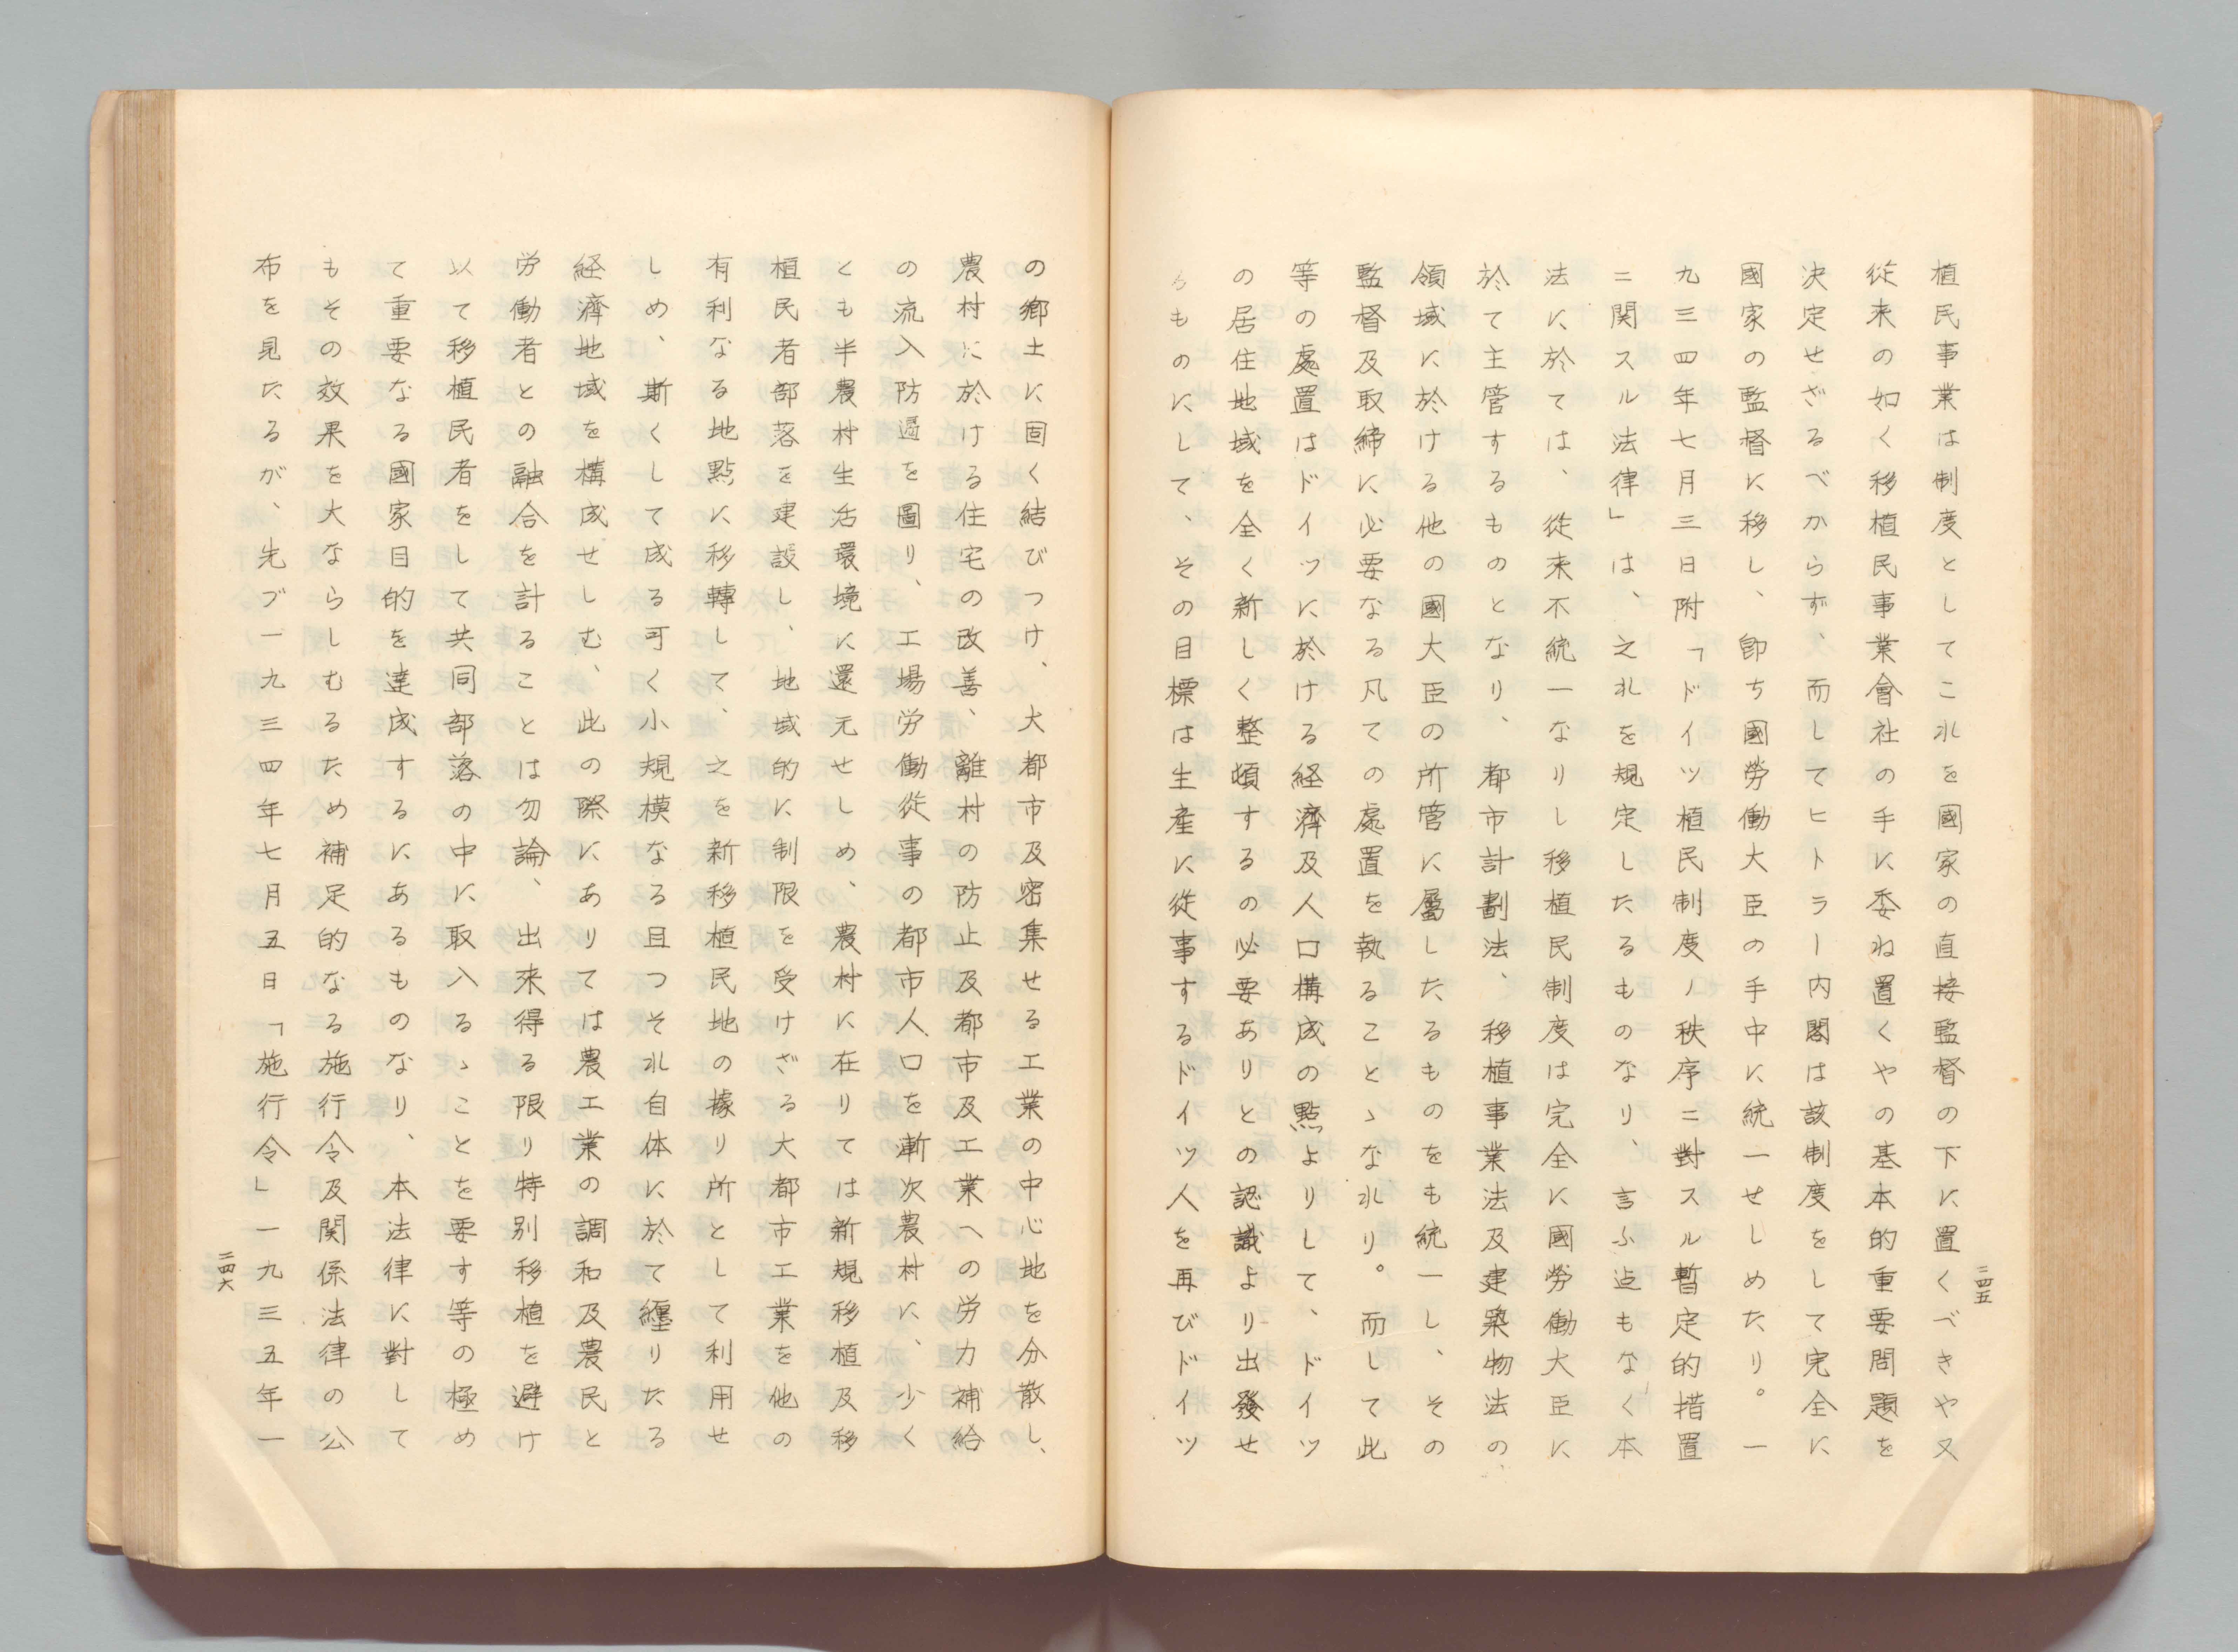 植民事業は制度としてこれを國家の直接監督の下に置くべきや又
従来の如く移植民事業會社の手に委ね置くやの基本的重要問題を
決定せざるべからず、而してヒトラー内閣は該制度をして完全に
國家の監督に移し、卽ち國勞働大臣の手中に統一せしめたり。一
九三四年七月三日附「ドイツ植民制度ノ秩序ニ對スル暫定的措置
ニ関スル法律」は、之れを規定したるものなり、言ふ迠もなく本
法に於ては、従来不統一なりし移植民制度は完全に國勞働大臣に
於て主管するものとなり、都市計劃法、移植事業法及建築物法の
領域に於ける他の國大臣の所管に屬したるものをも統一し、その
監督及取締に必要なる凡ての處置を執ることゝなれり。而して此
等の處置はドイツに於ける経濟及人口構成の點よりして、ドイツ
の居住地域を全く新しく整頓するの必要ありとの認識より出發せ
るものにして、その目標は生産に従事するドイツ人を再びドイツ
二四五
の鄉土に固く結びつけ、大都市及密集せる工業の中心地を分散し、
農村に於ける住宅の改善、離村の防止及都市及工業への労力補給
の流入防遏を圖り、工場労働従事の都市人口を漸次農村に、少く
とも半農村生活環境に還元せしめ、農村に在りては新規移植及移
植民者部落を建設し、地域的に制限を受けざる大都市工業を他の
有利なる地點に移轉して、之を新移植民地の據り所として利用せ
しめ、斯くして成る可く小規模なる且つそれ自体に於て纒りたる
経濟地域を構成せしむ、此の際にありては農工業の調和及農民と
労働者との融合を計ることは勿論、出來得る限り特別移植を避け
以て移植民者をして共同部落の中に取入るゝことを要す等の極め
て重要なる國家目的を達成するにあるものなり、本法律に對して
もその效果を大ならしむるため補足的なる施行令及関係法律の公
布を見たるが、先づ一九三四年七月五日「施行令」一九三五年一
二四六